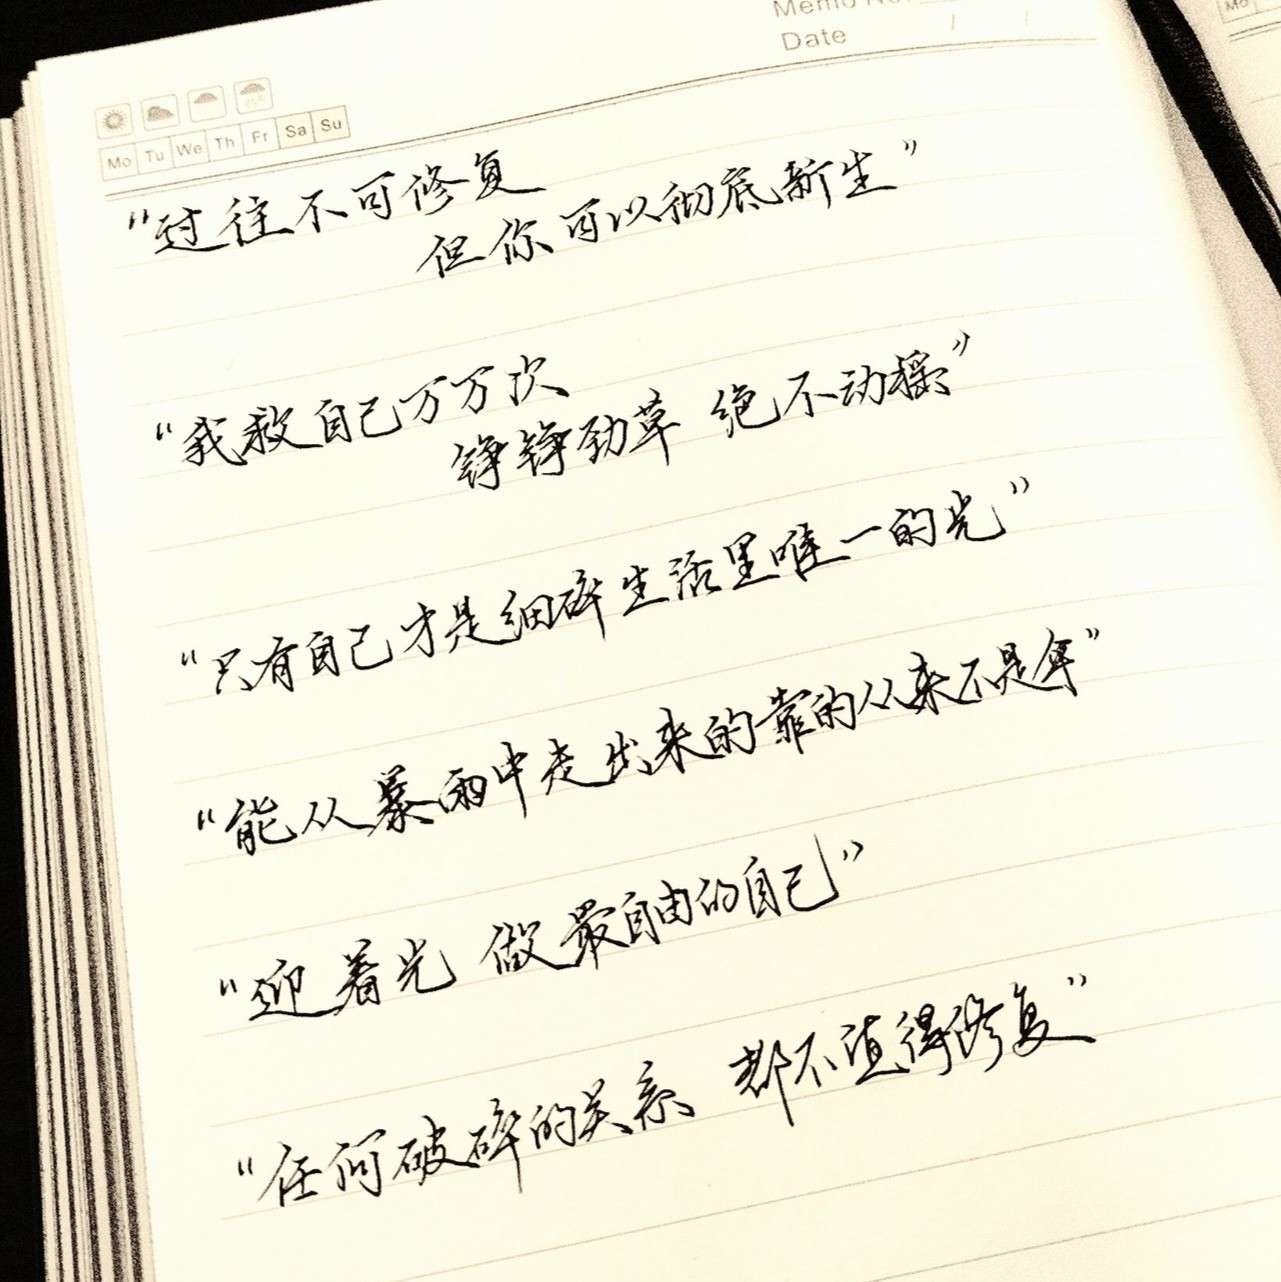 Memo No.
Date / /
Mo Tu We Th Fr Sa Su
Mo
“过往不可修复
但你可以彻底新生”
“我救自己万万次
铮铮劲草 绝不动摇”
“只有自己才是细碎生活里唯一的光”
“能从暴雨中走出来的靠的从来不是伞”
“迎着光 做最自由的自己”
“任何破碎的关系 都不值得修复”